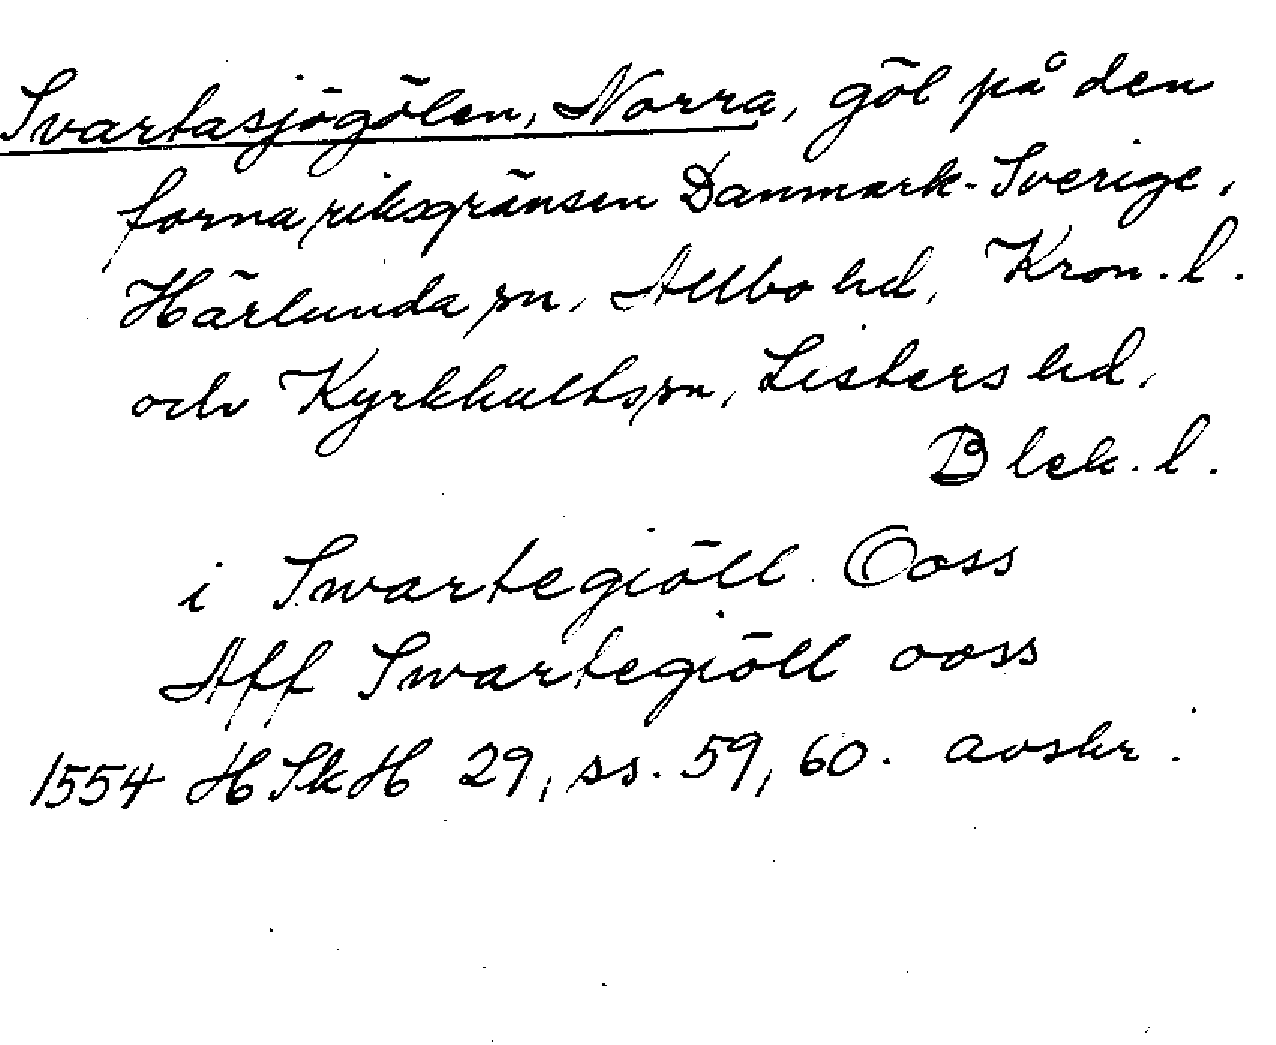 Svartasjögölen, Norra, göl på den
forna riksgränsen Danmark-Sverige,
Härlunda sn, Allbo hd, Kron. l.
och Kyrkhults sn, Listers hd,
Blek. l.
i Swartegiöll Ooss
Aff Swartegiöll ooss
1554 HSkH 29, ss. 59, 60. avskr.